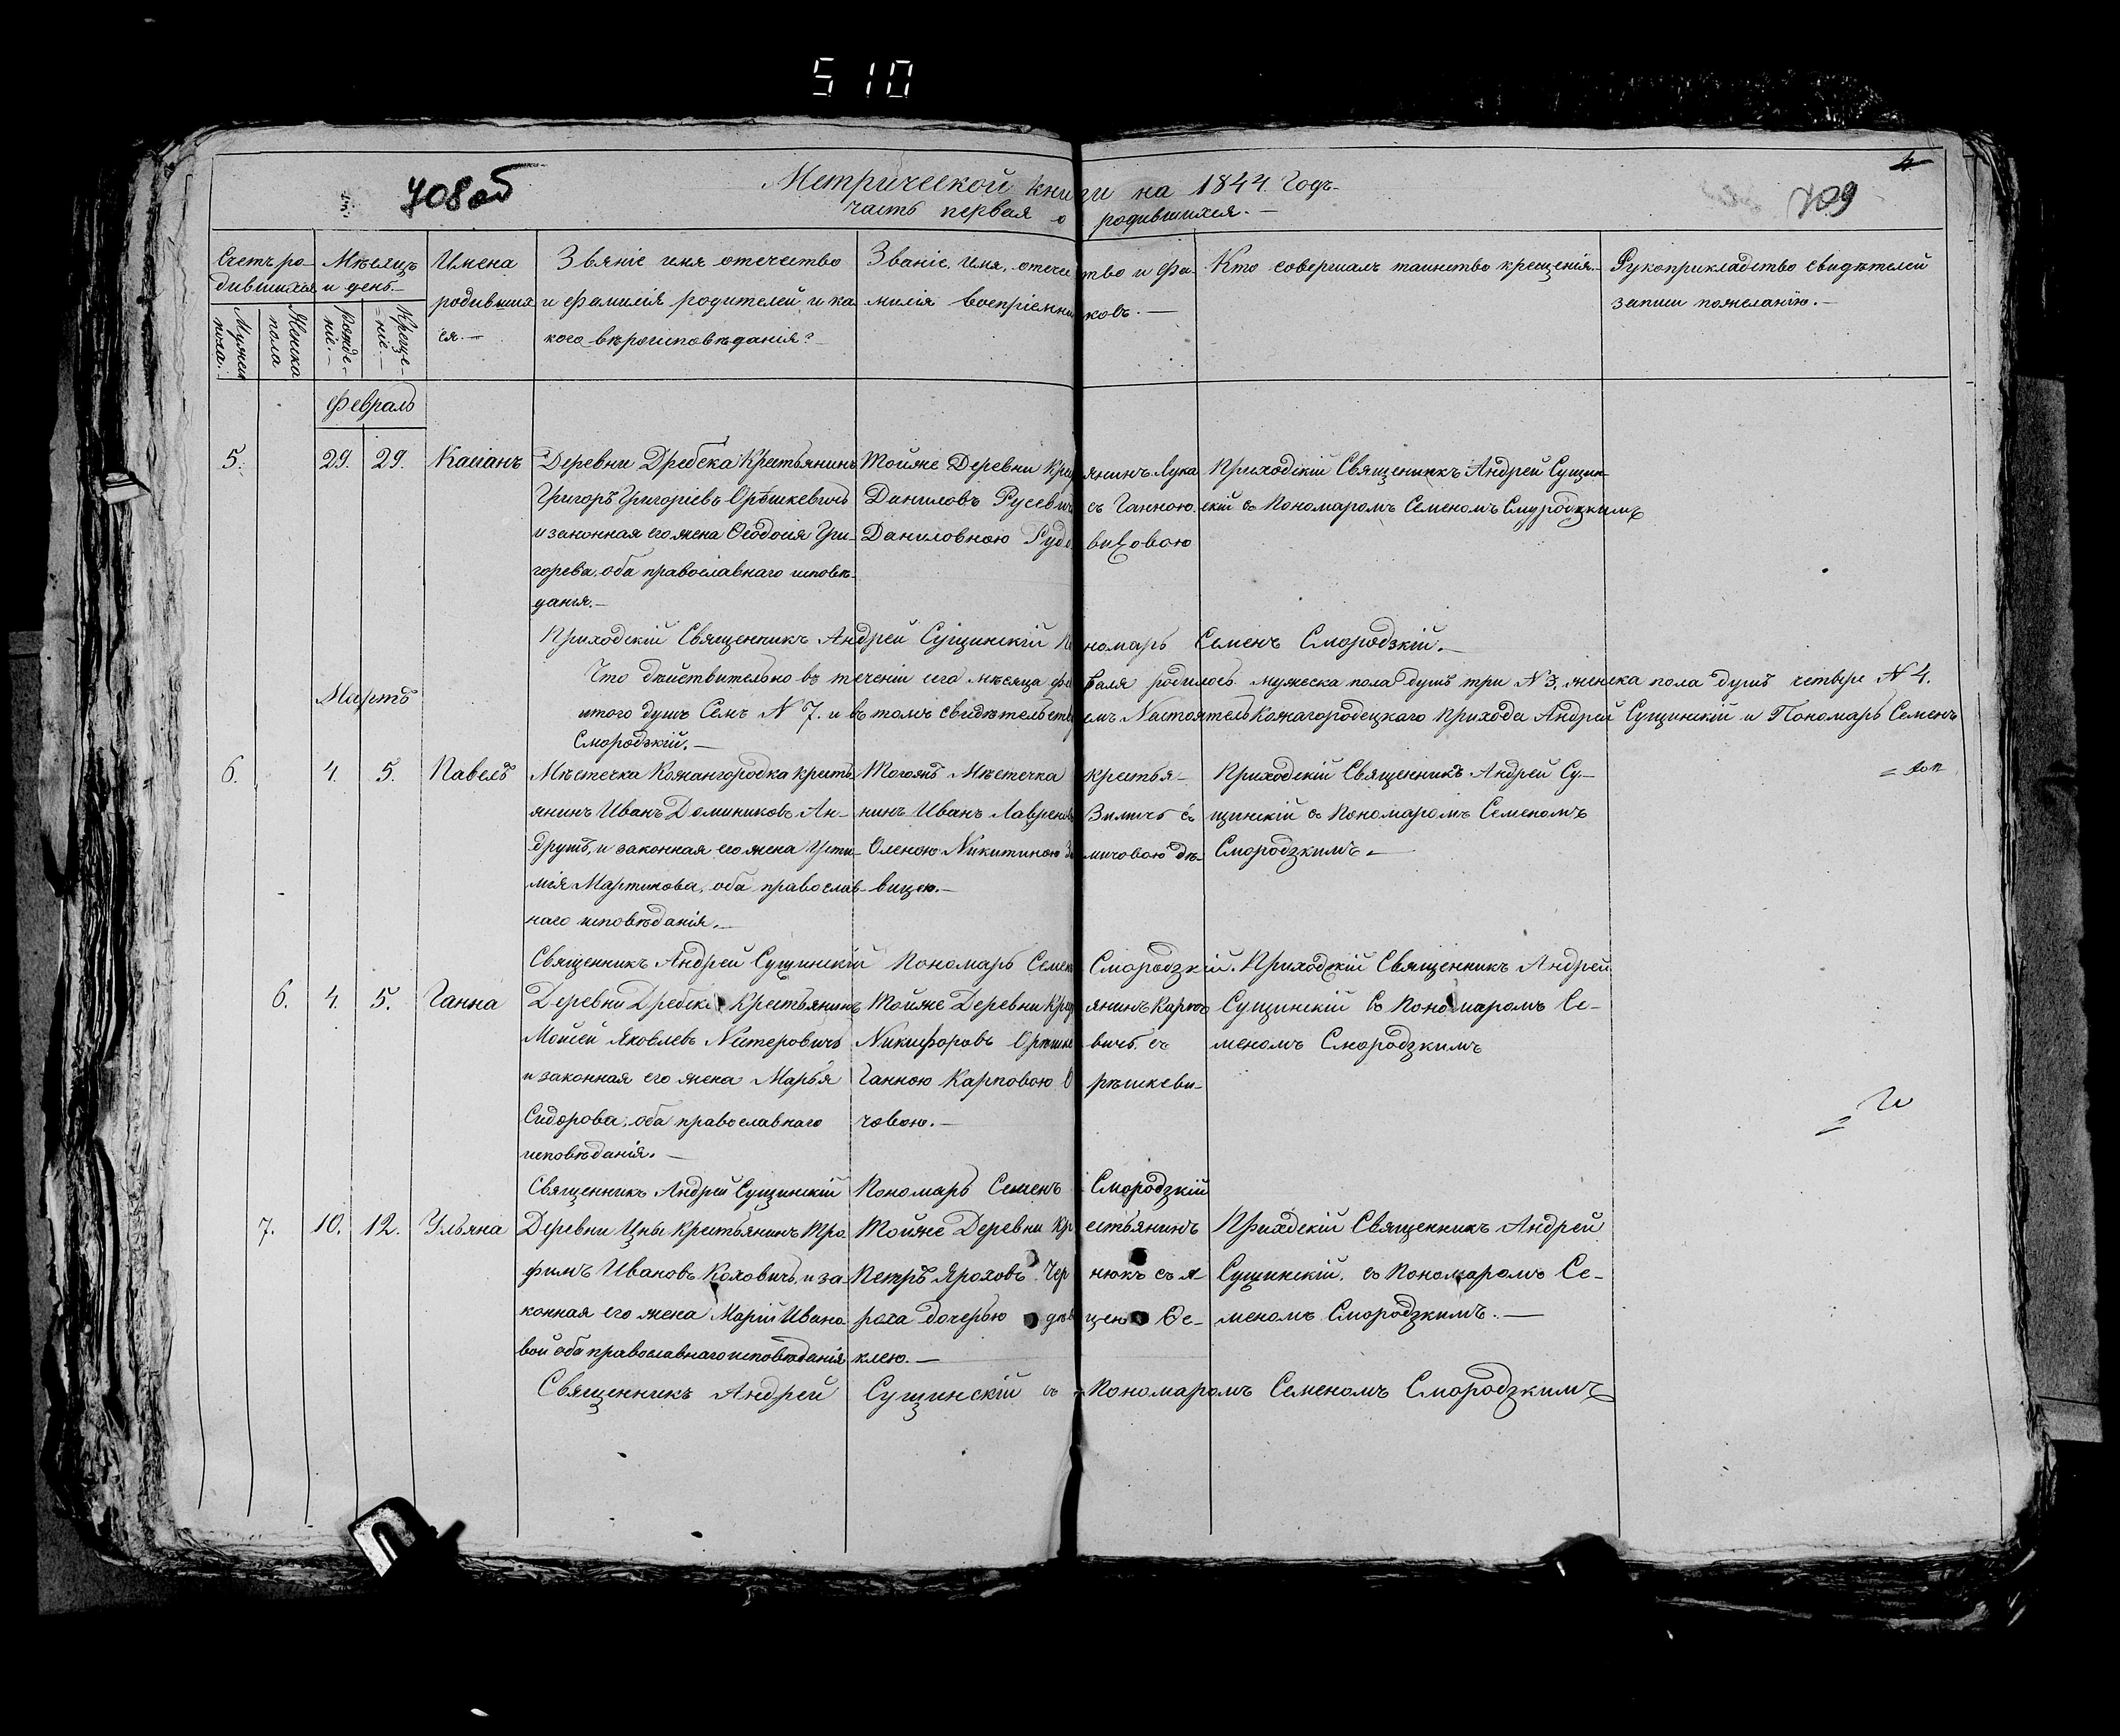 510
708об
Метрической книги на 1844. Годъ.
709
часть первая о родившихся.
Счетъ ро-
дившихся
Мужеска пола.
Женска пола
Мѣсяцъ
и день.
рожде-
ніе.
Креще-
ніе.
Имена
родивших
ся.
Званіе имя отечество
и Фамилія родителей и ка
кого вѣроисповѣданія?
Званіе, Имя, отече тво и фа-
милія воспріемни ковъ.
Кто совершалъ таинство крещенія.
Рукоприкладство свидѣтелей
записи пожеланію.
Февраль
5. 29. 29. Касіанъ
Деревни Дребска Крестьянинъ
Григоръ Григоріевъ Орѣшкевичъ
и законная его жена Ѳеодосія Гри-
горева, оба православнаго исповѣ-
данія.
Тойже Деревни Крес янинъ Лука
Даниловъ Русевич съ Ганною
Даниловною
Приходскій Священникъ Андрей Сущин-
скій съ Пономаромъ Семеномъ Смуродзкимъ
Приходскій Священникъ Андрей Сущинскій По номарь Семенъ Смородзкій.
Что дѣйствительно въ теченіи сего мѣсяца фе валя родилось мужеска пола душъ три N 3, женска пола душъ четыре N 4.
итого душъ Семъ N 7. и въ томъ свидѣтельству емъ Настоятель Кожагородецкаго Прихода Андрей Сущинскій и Пономарь Семенъ
Смородзкій.
Мартъ
6. 4. 5. Павелъ
Мѣстечка Кожангородка кресть
янинъ Иванъ Доминиковъ Ан-
друшъ, и законная его жена Усти-
мія Мартинова, оба православ-
наго исповѣданія.
Тогожъ Мѣстечка крестья-
нинъ Иванъ Лавренов Зиличъ съ
Оленою Никитиною Зи личовою дѣ-
вицею.
Приходскій Священникъ Андрей Су-
щинскій съ Пономаромъ Семеномъ
Смородзкимъ.
Священникъ Андрей Сущинскій Пономарь Семен Смородзкій.
6. 4. 5. Ганна
Деревни Дребска Крестьянинъ
Моисей Яковлевъ Нестеровичъ
и законная его жена Марья
Сидорова, оба православнаго
исповѣданія.
Тойже Деревни Крес янинъ Карпъ
Никифоровъ Орѣшке вичъ съ
Ганною Карповою О рѣшкеви-
човою.
Приходскій Священникъ Андрей
Сущинскій съ Пономаромъ Се-
меномъ Смородзкимъ
Священникъ Андрей Сущинскій Пономарь Семенъ Смородзкій
7. 10. 12. Ульяна
Деревни Цны Крестьянинъ Тро
фимъ Ивановъ Коховичъ, и за
конная его жена Марій Ивано
вой оба православнаго исповѣданія
Тойже Деревни Кр естьянинъ
Петръ Яроховъ Чер нюкъ съ Я
роха дочерью дѣв цею Ѳе-
клею.
Прихдскій Священникъ Андрей
Сущинскій, съ Пономаромъ Се-
меномъ Смородзкимъ.
Священникъ Андрей Сущинскій съ Пономаромъ Семеномъ Смородзкимъ